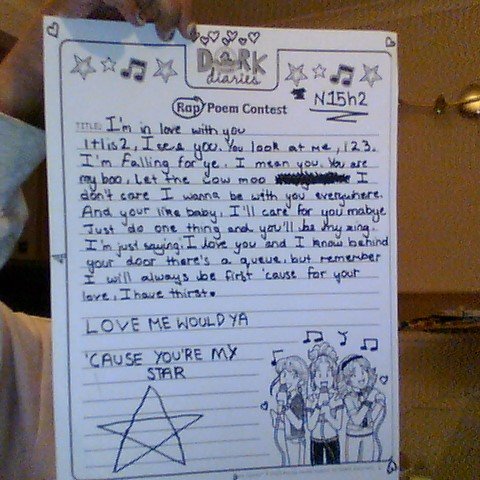 DORK
diaries
Rap Poem Contest
N15h2
TITLE: I'm in love with you
1+1is2, I see you. You look at me, 123.
I'm Falling for ye. I mean you. You are
my boo, Let the cow moo I
don't care I wanna be with you everywhere.
And your like baby, I'll care for you mabye
Just do one thing and you'll be my zing.
I'm just saying, I love you and I know behind
your door there's a queue, but remember
I will always be first 'cause for your
love, I have thirst.
LOVE ME WOULD YA
'CAUSE YOU'RE MY
STAR